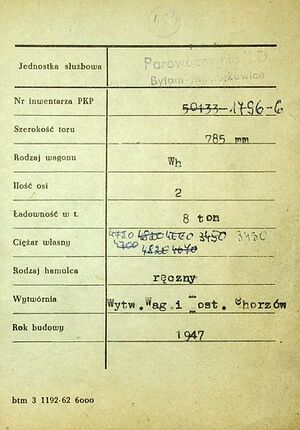 453
Jednostka służbowa
Parowozownia K.D.
Bytom-Karb Wąsk.
Nr inwentarza PKP 50133- 1796-C
Szerokość toru 785 mm
Rodzaj wagonu Wh
Ilość osi 2
Ładowność w t. 8 ton
Ciężar własny 4720 4820 4660 3450 3430
4700 4820 4670
Rodzaj hamulca ręczny
Wytwórnia Wytw.Wag.i Most. Chorzów
Rok budowy 1947
btm 3 1192-62 6000